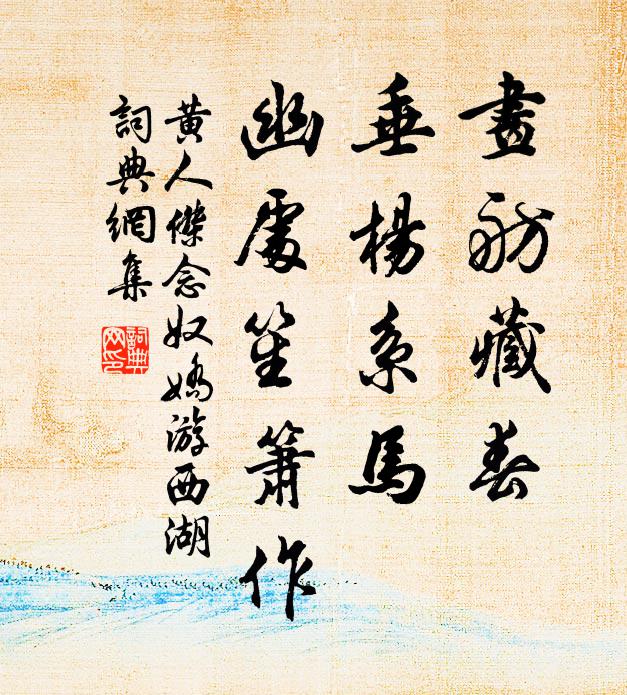 畫舫藏春
垂楊系馬
幽處笙簫作
黃人傑念奴嬌游西湖
詞典網集
詞典网印